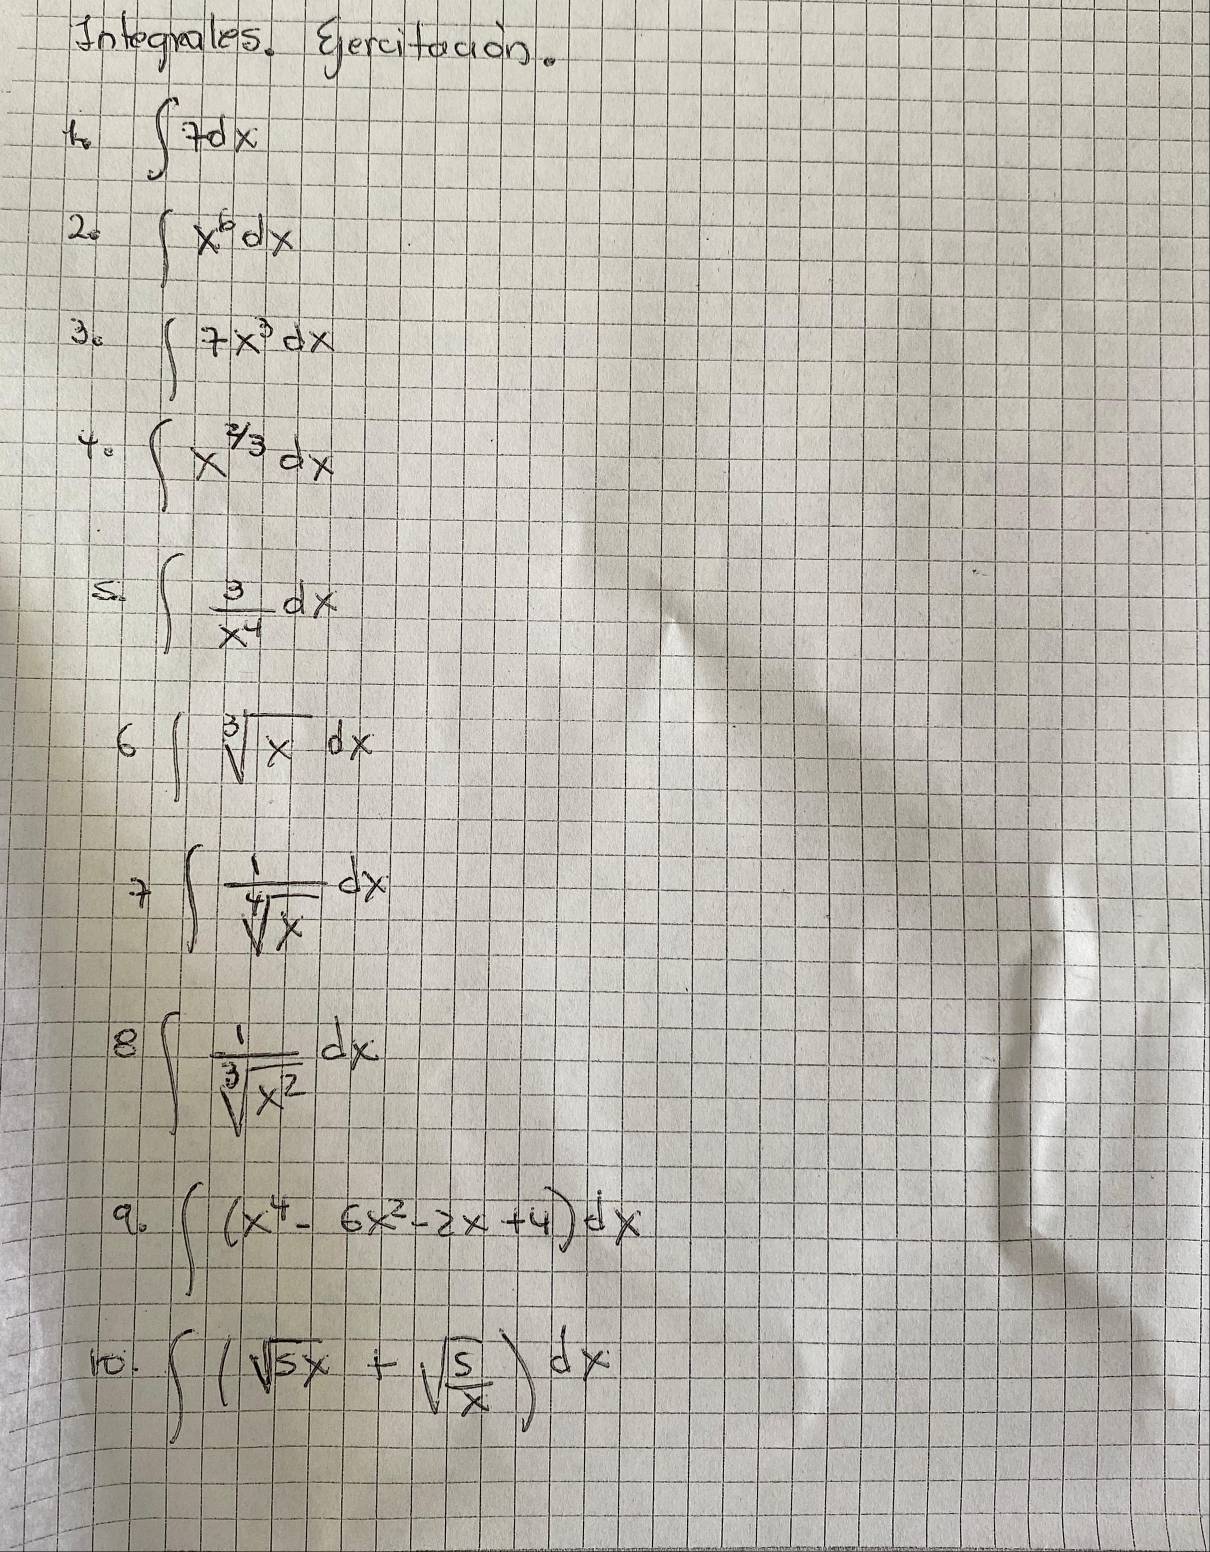 Integrales. Ejercitación.
1. ∫ 7dx
2. ∫ x⁶ dx
3. ∫ 7x³ dx
4. ∫ x^(2/3) dx
5. ∫ 3/x⁴ dx
6 ∫ ∛x dx
7 ∫ 1/∜x dx
8 ∫ 1/∛x² dx
9. ∫ (x⁴ - 6x² - 2x + 4) dx
10. ∫ (√5x + √(5/x)) dx